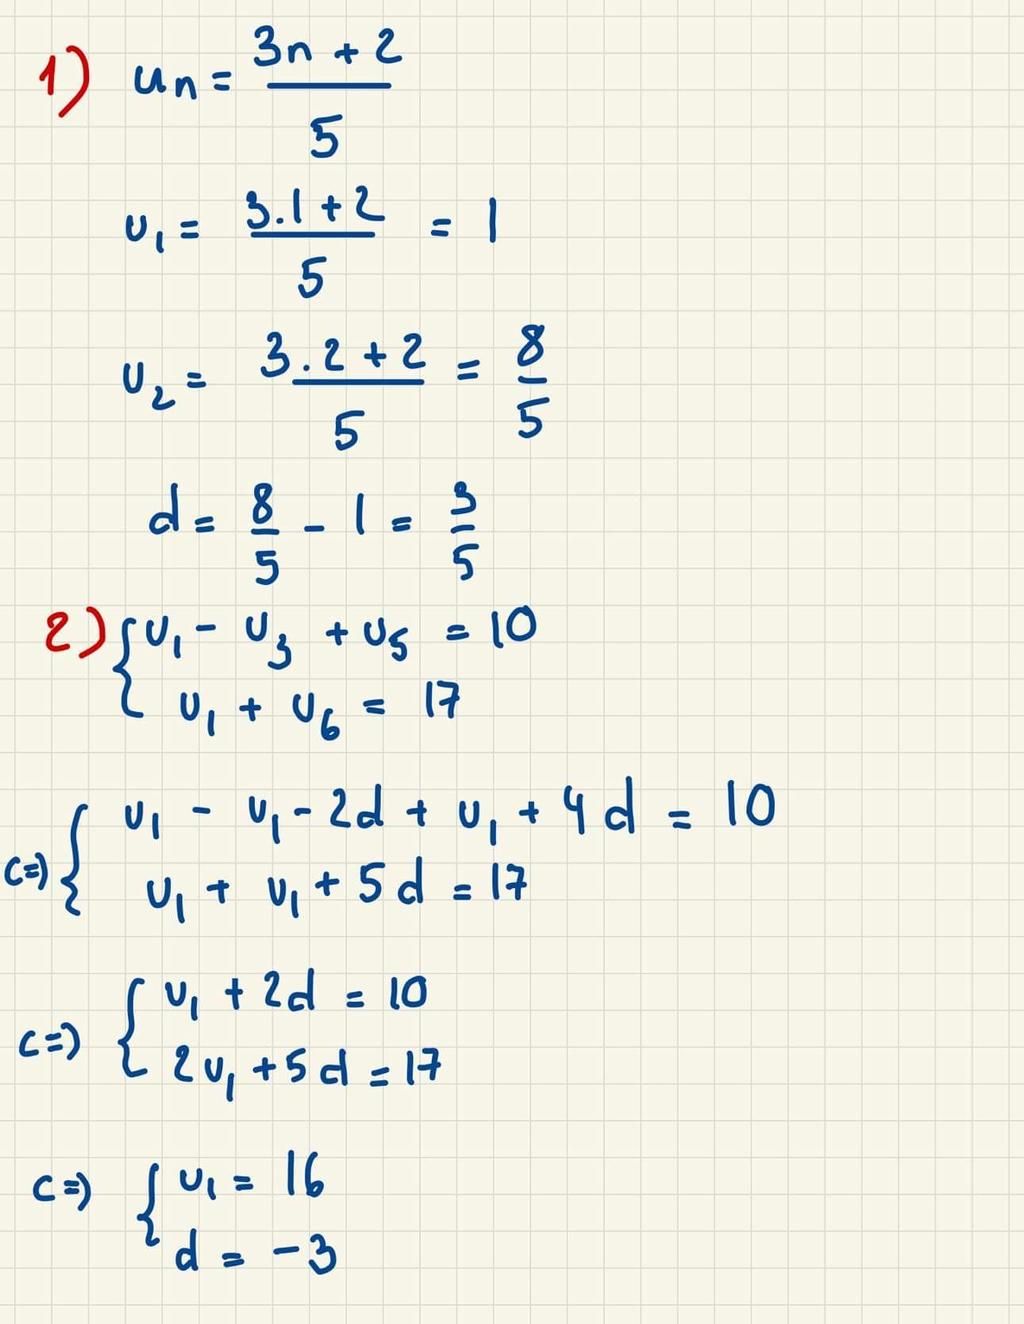 1) un = (3n + 2)/5
u₁ = (3.1 + 2)/5 = 1
u₂ = (3.2 + 2)/5 = 8/5
d = 8/5 - 1 = 3/5
2) { u₁ - u₃ + u₅ = 10
u₁ + u₆ = 17
<=> { u₁ - u₁ - 2d + u₁ + 4d = 10
u₁ + u₁ + 5d = 17
<=> { u₁ + 2d = 10
2u₁ + 5d = 17
<=> { u₁ = 16
d = -3